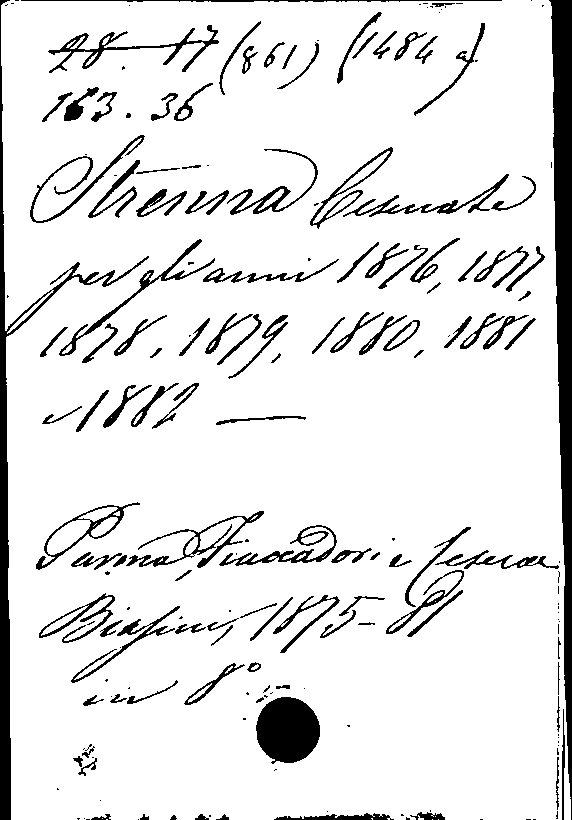 28. 17 (861) (1484 a)
163. 36
Strenna Cesenate
per gli anni 1876, 1877,
1878, 1879, 1880, 1881
e 1882 —
Parma, Fiaccadori e Cesena
Biasini, 1875-81
in 8°